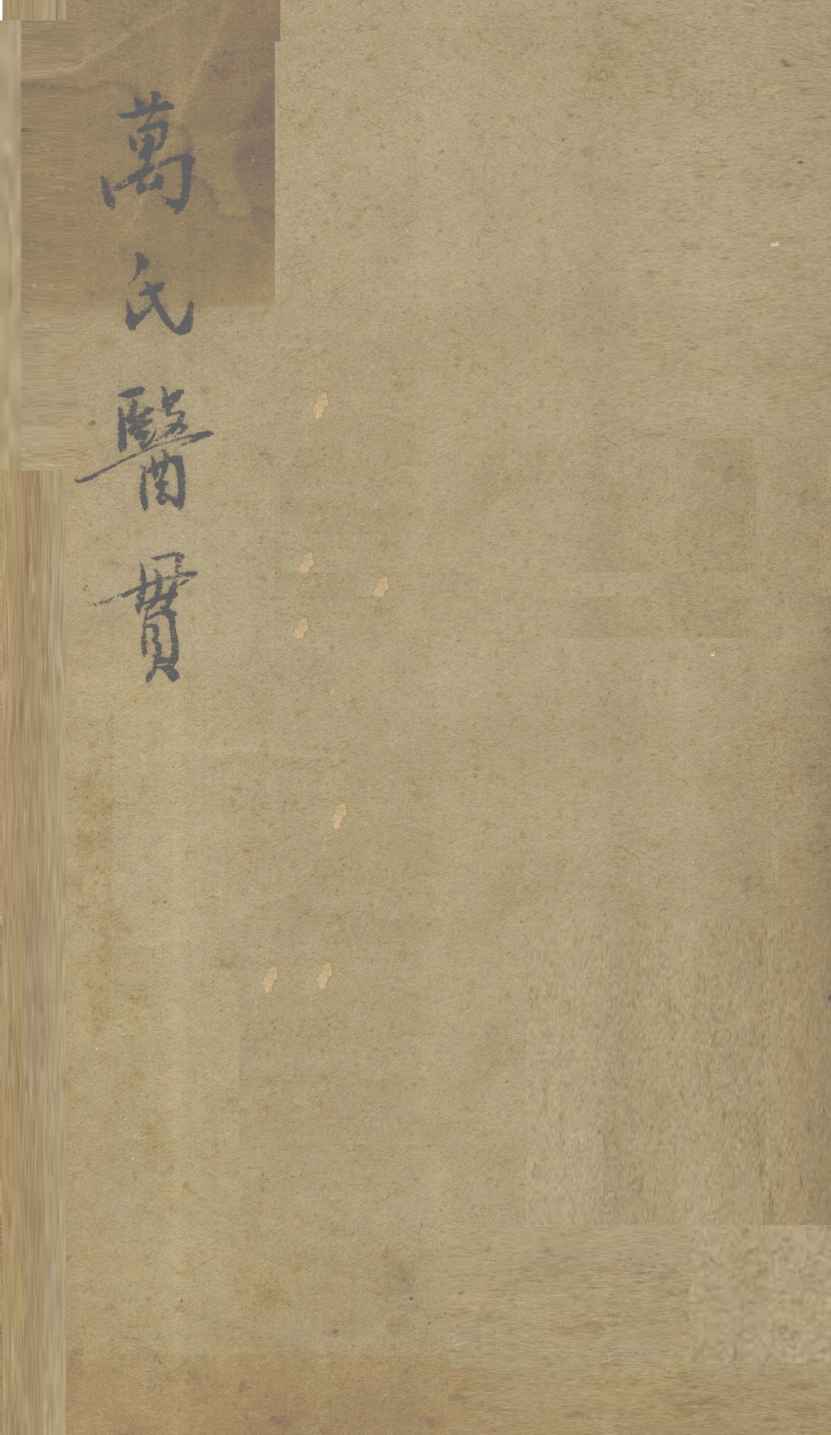 萬氏醫貫